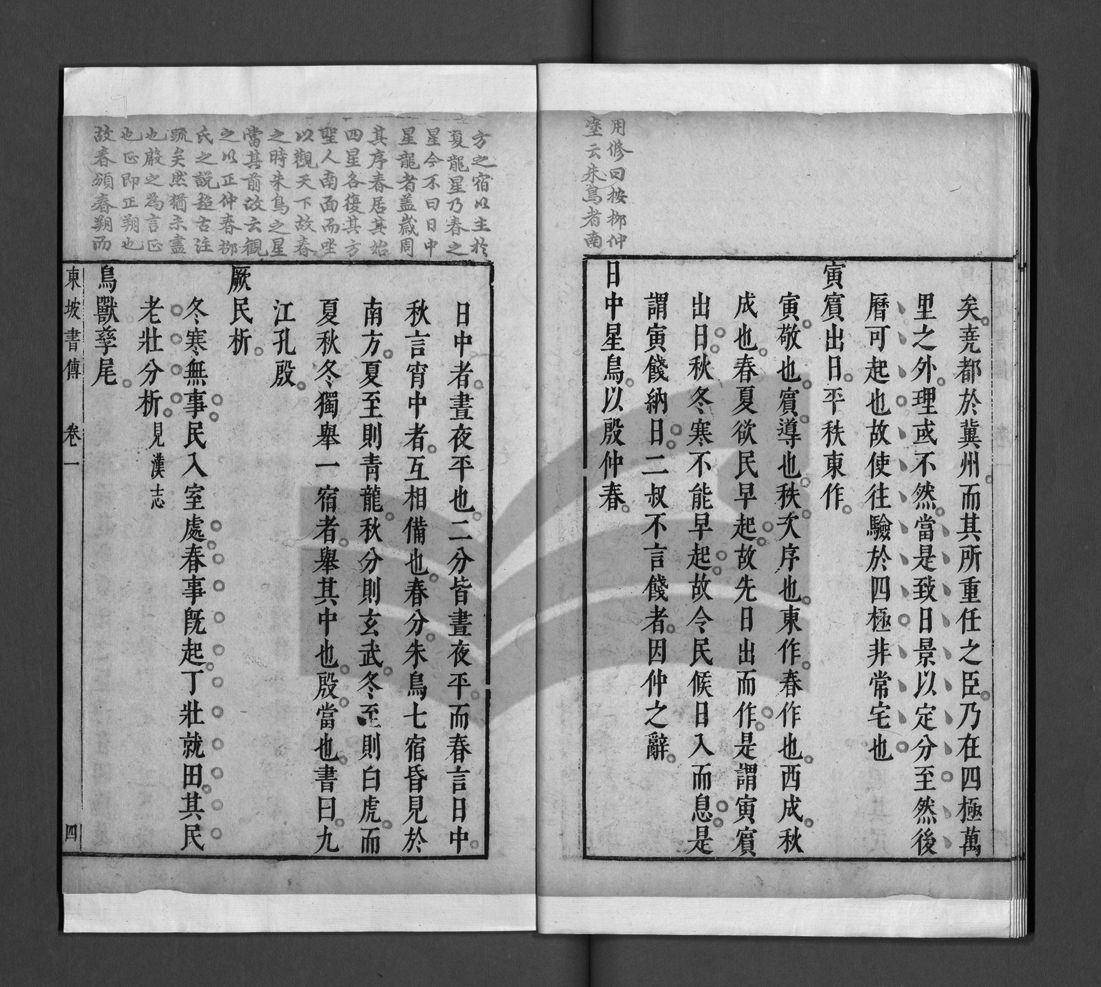 用修曰按柳仲
塗云朱鳥者南
矣堯都於冀州而其所重任之臣乃在四極萬
里之外理或不然當是致日景以定分至然後
曆可起也故使往驗於四極非常宅也
寅賓出日平秩東作
寅敬也賓導也秩次序也東作春作也西成秋
成也春夏欲民早起故先日出而作是謂寅賓
出日秋冬寒不能早起故令民候日入而息是
謂寅餞納日二叔不言餞者因仲之辭
日中星鳥以殷仲春
方之宿以主於
夏龍星乃春之
星今不曰日中
星龍者蓋歲周
其序春居其始
四星各復其方
聖人南面而坐
以觀天下故春
之時朱鳥之星
當其前故云觀
之以正仲春柳
氏之說超古注
疏矣然猶未盡
也殷之為言正
也正即正朔也
故春頒春朔而
日中者晝夜平也二分皆晝夜平而春言日中
秋言宵中者互相備也春分朱鳥七宿昏見於
南方夏至則青龍秋分則玄武冬至則白虎而
夏秋冬獨舉一宿者舉其中也殷當也書曰九
江孔殷
厥民析
冬寒無事民入室處春事旣起丁壯就田其民
老壯分析見漢志
鳥獸孳尾
東坡書傳 卷一 四